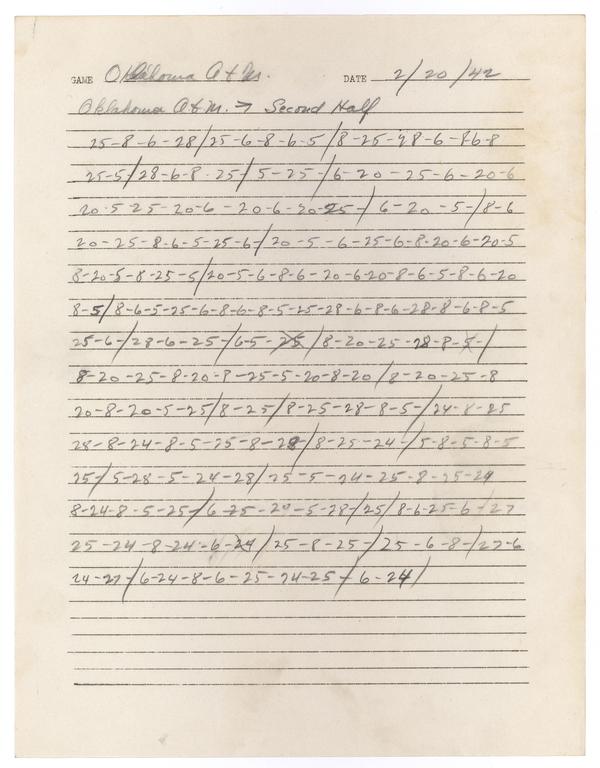 GAME Oklahoma A & M. DATE 2/20/42
Oklahoma A & M. → Second Half
25-8-6-28/25-6-8-6-5/8-25-28-6-8-6-8
25-5/28-6-8-25/5-25-/6-20-25-6-20-6
20-5-25-20-6-20-6-20-25-/6-20-5-/8-6
20-25-8-6-5-25-6/20-5-6-25-6-8-20-6-20-5
8-20-5-8-25-5/20-5-6-8-6-20-6-20-8-6-5-8-6-20
8-5/8-6-5-25-6-8-6-8-5-25-28-6-8-6-28-8-6-8-5
25-6-/28-6-25-/6-5-25/8-20-25-28-8-5-/
8-20-25-8-20-8-25-5-20-8-20/8-20-25-8
20-8-20-5-25/8-25/8-25-28-8-5-/24-8-25
28-8-24-8-5-25-8-28/8-25-24-/5-8-5-8-5
25/5-28-5-24-28/25-5-24-25-8-25-24
8-24-8-5-25-/6-25-20-5-28/25/8-6-25-6-27
25-24-8-24-6-24/25-8-25-/25-6-8-/27-6
24-27-/6-24-8-6-25-24-25-/6-24/